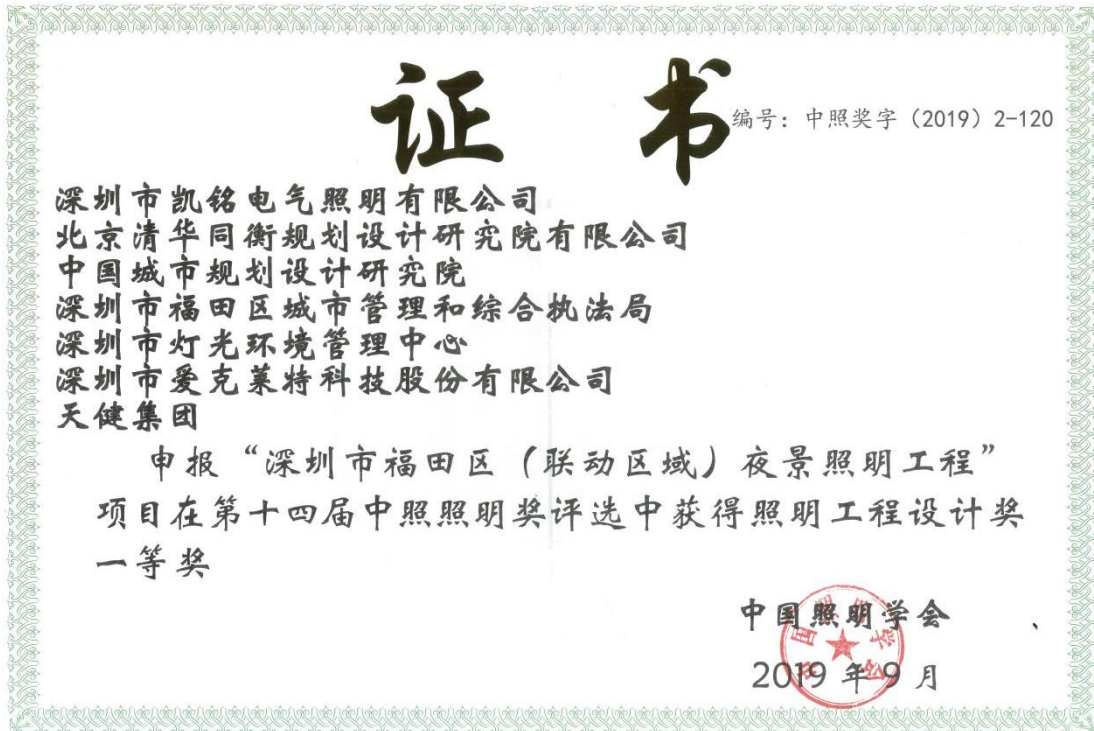 证 书
编号：中照奖字（2019）2-120
深圳市凯铭电气照明有限公司
北京清华同衡规划设计研究院有限公司
中国城市规划设计研究院
深圳市福田区城市管理和综合执法局
深圳市灯光环境管理中心
深圳市爱克莱特科技股份有限公司
天健集团
申报“深圳市福田区（联动区域）夜景照明工程”
项目在第十四届中照照明奖评选中获得照明工程设计奖
一等奖
中国照明学会
2019年9月
中国照明学会